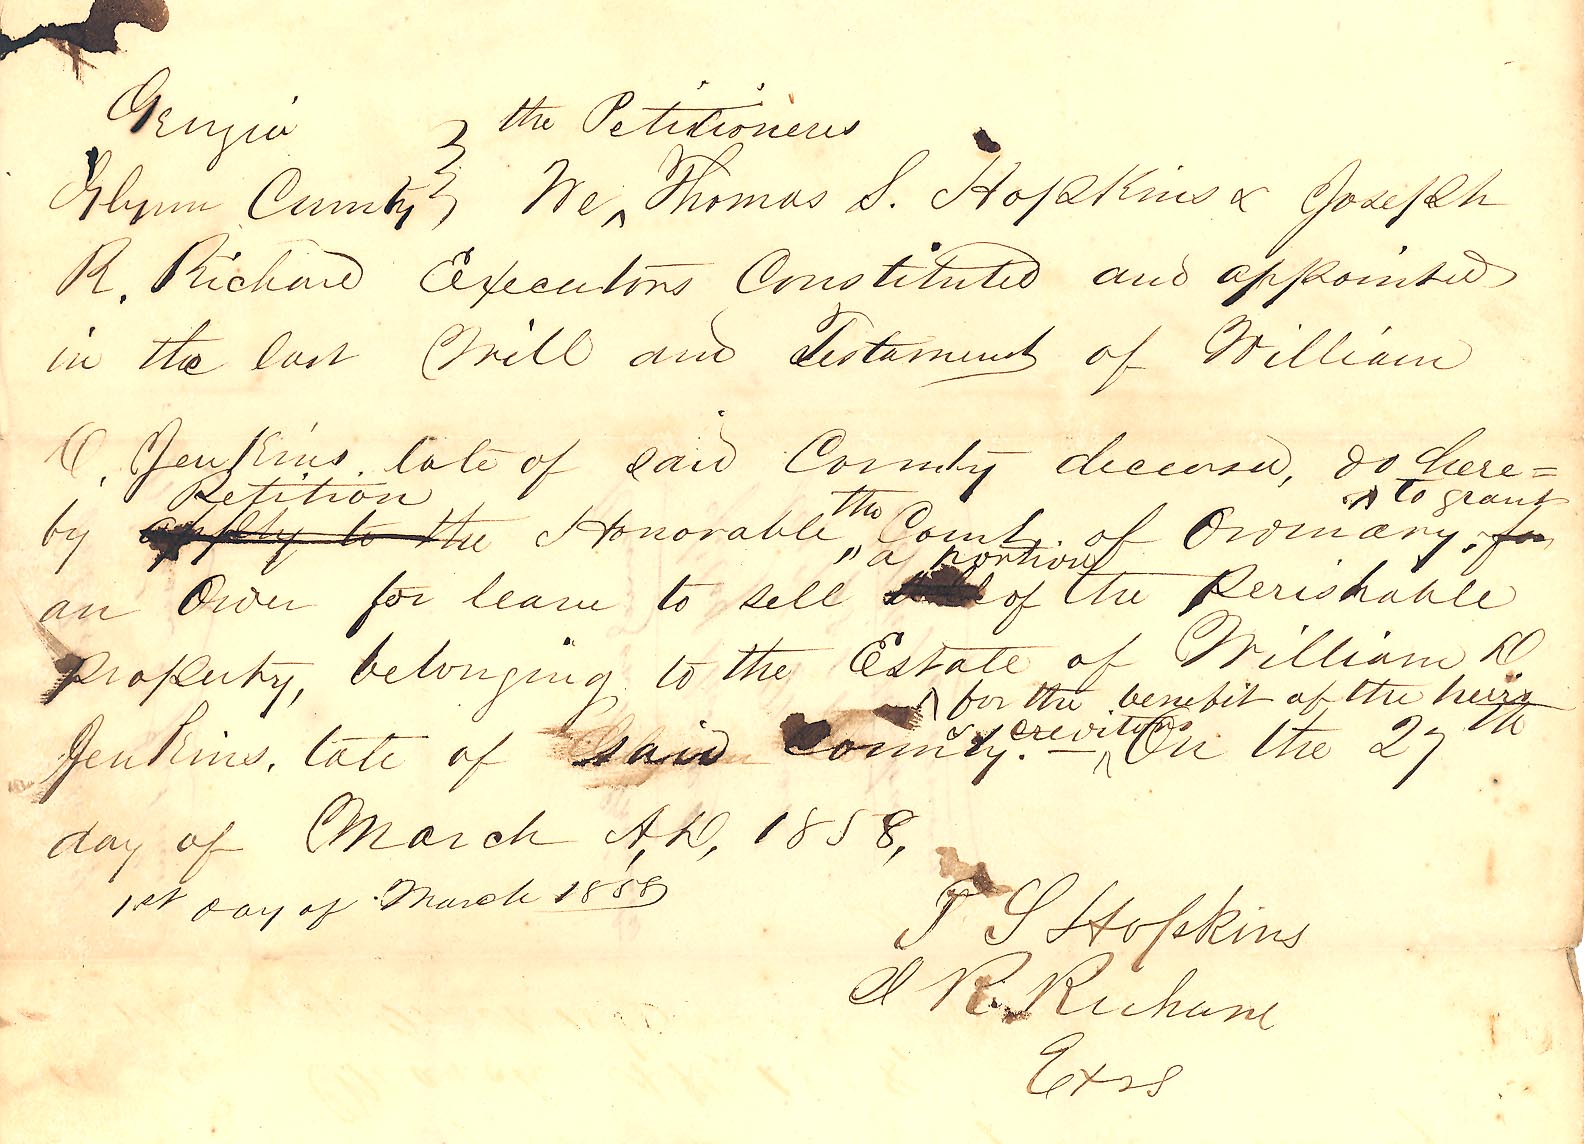 Georgia
the Petitioners
Glynn County We Thomas S. Hopkins & Joseph
R. Richard Executors Constituted and appointed
in the last Will and Testament of William
D. Jenkins, late of said County deceased, do here=
Petition the to grant
by apply to the Honorable Court of Ordinary, for
a portion
an Order for leave to sell of the Perishable
property, belonging to the Estate of William D
for the benefit of the heirs
& creditors
Jenkins, late of said County. — On the 27th
day of March A,D, 1858,
1st day of March 1858
T S Hopkins
J R. Richard
Exrs